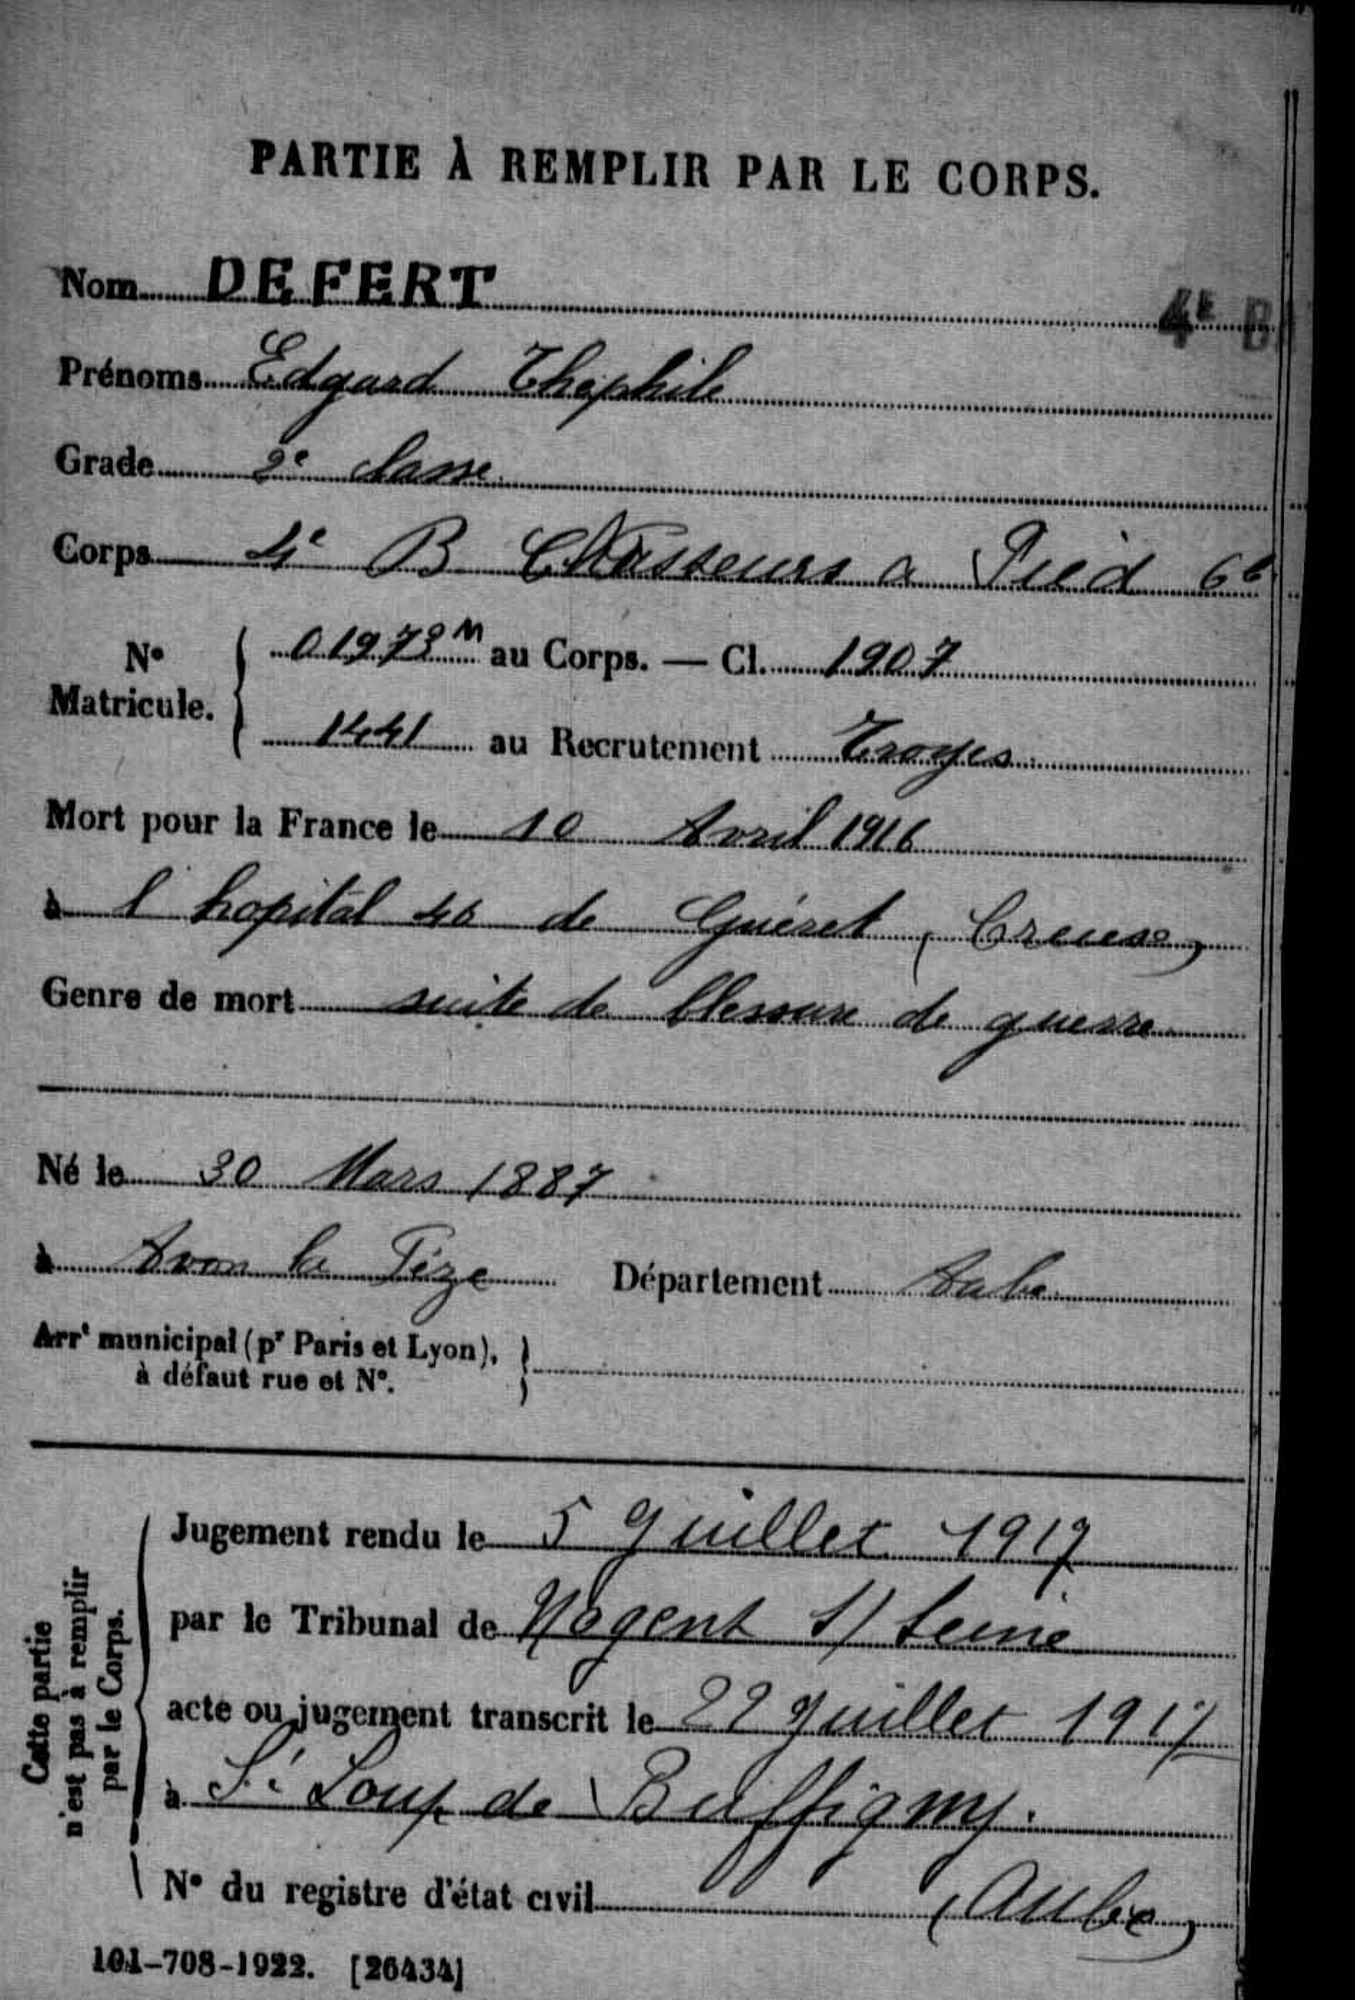 PARTIE À REMPLIR PAR LE CORPS.
Nom DEFERT
4E B
Prénoms Edgard Théophile
Grade 2e classe
Corps 4e B Chasseurs a Pied
N° Matricule. 01973M au Corps. — Cl. 1907
1441 au Recrutement Troyes
Mort pour la France le 10 Avril 1916
à l'hopital 46 de Guéret (Creuse)
Genre de mort suite de blessure de guerre
Né le 30 Mars 1887
à Avon la Pèze Département Aube
Arrt municipal (pr Paris et Lyon),
à défaut rue et N°.
Cette partie
n'est pas à remplir
par le Corps.
Jugement rendu le 5 Juillet 1917
par le Tribunal de Nogent s/ Seine
acte ou jugement transcrit le 22 Juillet 1917
à St Loup de Buffigny.
N° du registre d'état civil (Aube)
101-708-1922. [26434]